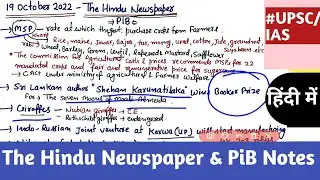 19 October 2022 - The Hindu Newspaper
PiB
#UPSC/
IAS
MSP - rate at which the govt. purchase crops from Farmers
maize, bajra,
wheat, Barley, Gram, Lentil, Rapeseeds Mustard, Safflower
The Commission for Agricultural Costs & prices recommends MSPs for 22
mandated crops and fair and remunerative price for sugarcane
CACP under ministry of agriculture & Farmer Welfare
Sri Lankan author "Shehan Karunatilaka" wins Booker Prize
for The seven moons of Maali Almeida
Giraffes - Nubian giraffes
Rothschild giraffes → endangered
Indo-Russian joint venture at Korwa (UP) will start manufacturing
हिंदी में
The Hindu Newspaper & PiB Notes